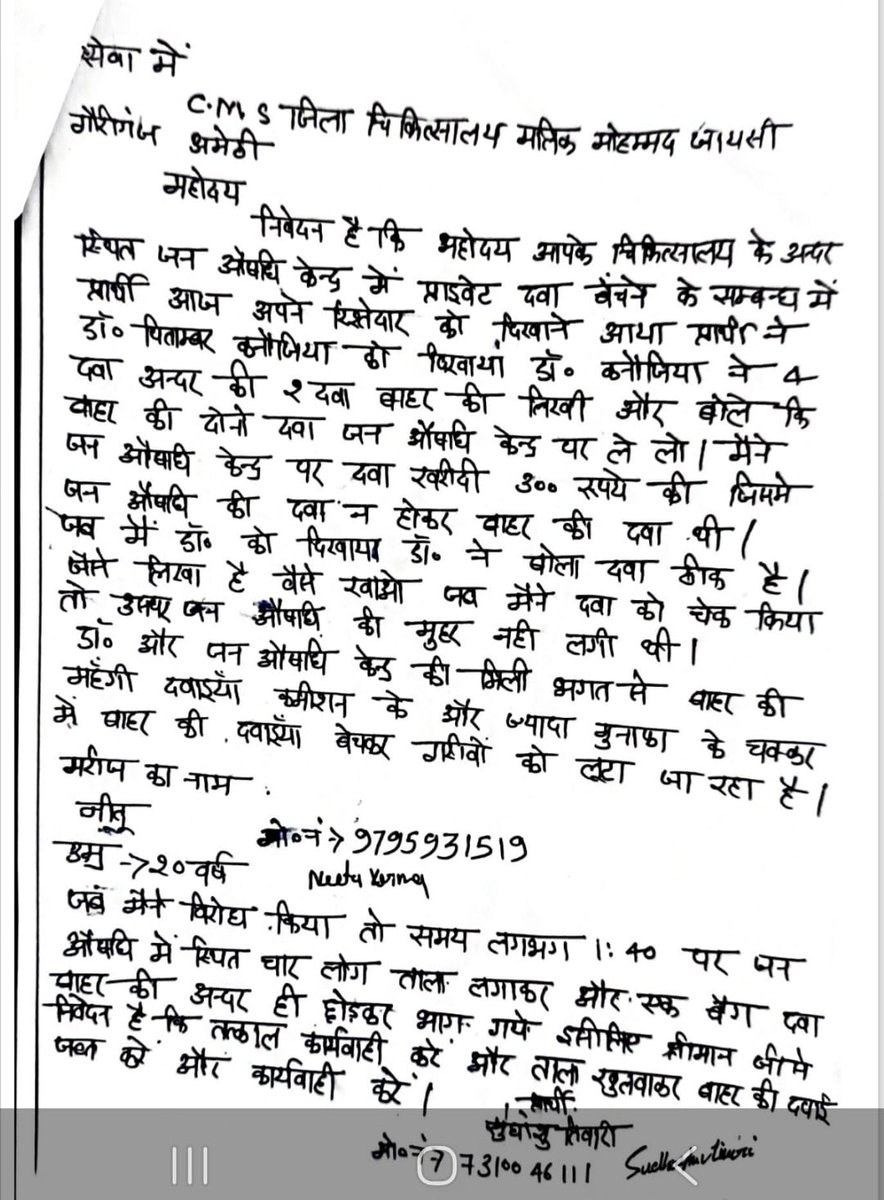 सेवा में
C.M.S जिला चिकित्सालय मलिक मोहम्मद जायसी
गौरीगंज अमेठी
महोदय
निवेदन है कि महोदय आपके चिकित्सालय के अन्दर
स्थित जन औषधि केन्द्र में प्राइवेट दवा बेंचने के सम्बन्ध में
प्रार्थी आज अपने रिश्तेदार को दिखाने आया प्रार्थी ने
डॉ० पिताम्बर कनौजिया को दिखाया डॉ० कनौजिया ने 4
दवा अन्दर की २ दवा बाहर की लिखी और बोले कि
बाहर की दोनो दवा जन औषधि केन्द्र पर ले लो। मैने
जन औषधि केन्द्र पर दवा खरीदी ३०० रुपये की जिसमे
जन औषधि की दवा न होकर बाहर की दवा थी।
जब मैं डॉ० को दिखाया डॉ० ने बोला दवा ठीक है।
जैसे लिखा है वैसे खाओ जब मैने दवा को चेक किया
तो उसपर जन औषधि की मुहर नही लगी थी।
डॉ० और जन औषधि केन्द्र की मिली भगत से बाहर की
महँगी दवाइयाँ कमीशन के और ज्यादा मुनाफा के चक्कर
में बाहर की दवाइयाँ बेचकर गरीबों को लूटा जा रहा है।
मरीज का नाम
नीतू
मो०नं → 9795931519
उम्र → २० वर्ष
Neetu Verma
जब मैने विरोध किया तो समय लगभग 1:40 पर जन
औषधि में स्थित चार लोग ताला लगाकर और एक बैग दवा
बाहर की अन्दर ही छोड़कर भाग गये इसीलिए श्रीमान जी से
निवेदन है कि तत्काल कार्यवाही करें और ताला खुलवाकर बाहर की दवाई
जब्त करें और कार्यवाही करें।
प्रार्थी
सुधांशु तिवारी
मो०नं → 7310046111